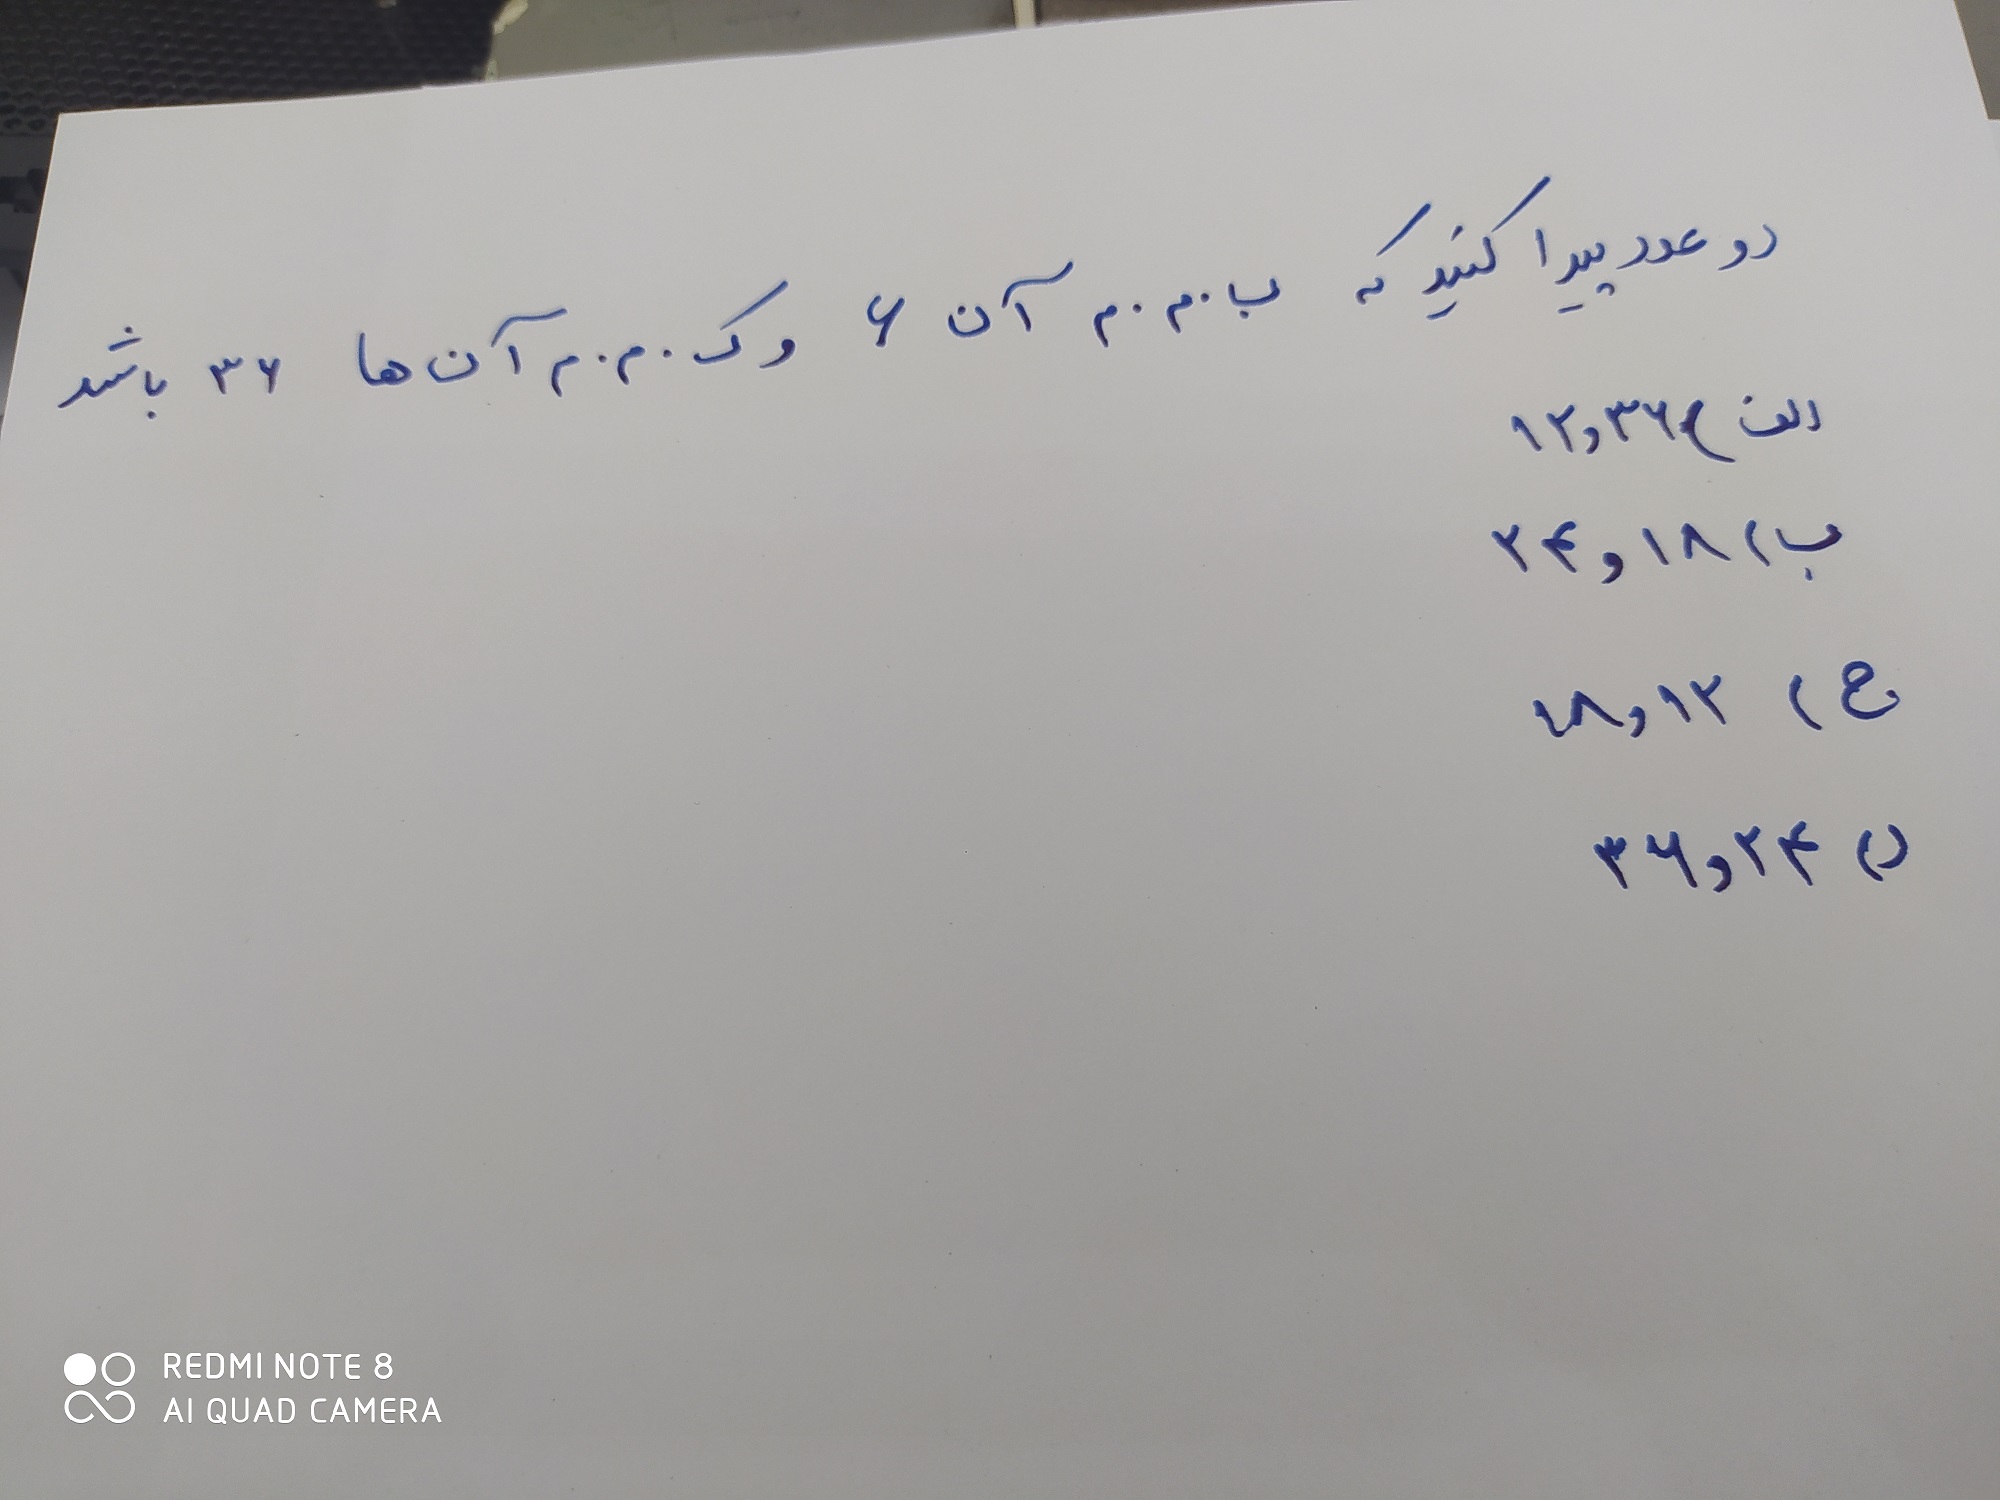 دو عدد پیدا کنید که ب.م.م آن ۶ و ک.م.م آن ها ۳۶ باشد
الف) ۳۶ و ۱۲
ب) ۱۸ و ۲۴
ج) ۱۲ و ۱۸
د) ۲۴ و ۳۶
REDMI NOTE 8
AI QUAD CAMERA